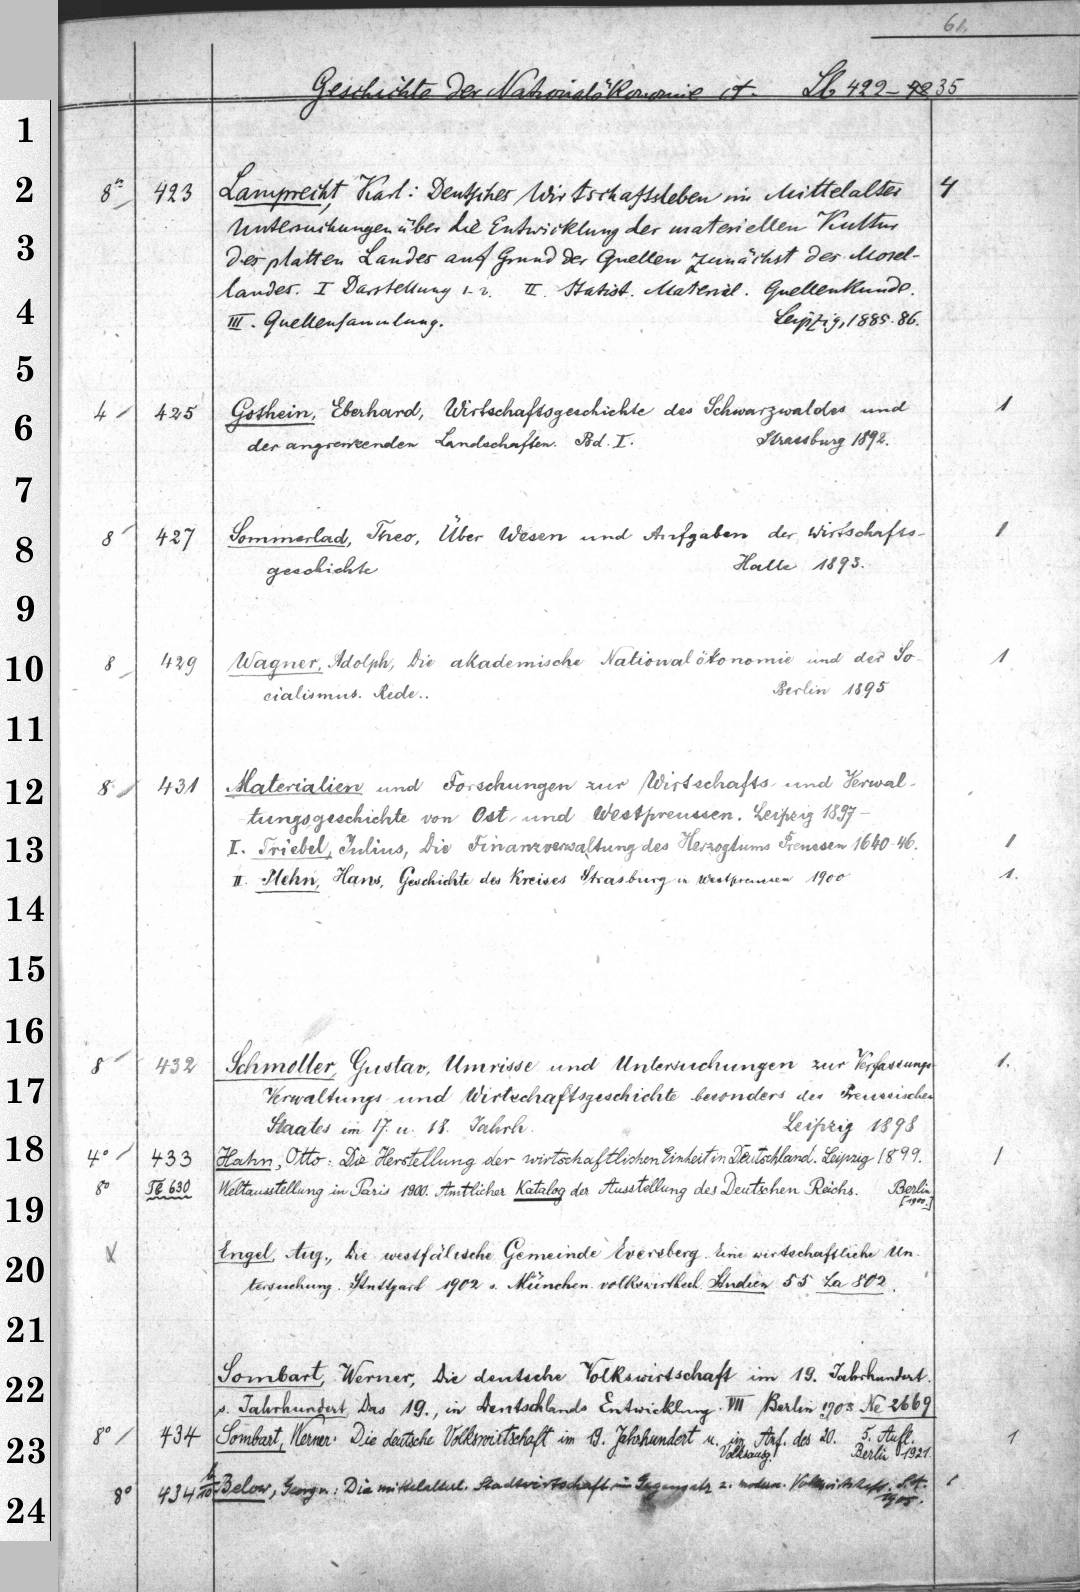 61.
Geschichte der Nationalökonomie et. Lb 422 - 35
1
2
3
4
5
6
7
8
9
10
11
12
13
14
15
16
17
18
19
20
21
22
23
24
8° 423 Lamprecht, Karl: Deutsches Wirtschaftsleben im Mittelalter
Untersuchungen über die Entwicklung der materiellen Kultur
des platten Landes auf Grund der Quellen zunächst des Mosel-
landes. I Darstellung 1-2. II. Statist. Material. Quellenkunde.
III. Quellensammlung. Leipzig, 1885-86. 4
4 425 Gothein, Eberhard, Wirtschaftsgeschichte des Schwarzwaldes und 1
der angrenzenden Landschaften. Bd. I. Strassburg 1892.
8 427 Sommerlad, Theo, Über Wesen und Aufgaben der Wirtschafts- 1
geschichte Halle 1893.
8 429 Wagner, Adolph, Die akademische Nationalökonomie und der So- 1
cialismus. Rede.. Berlin 1895
8 431 Materialien und Forschungen zur Wirtschafts- und Verwal-
tungsgeschichte von Ost- und Westpreussen. Leipzig 1897-
I. Triebel, Julius, Die Finanzverwaltung des Herzogtums Preussen 1640-46. 1
II. Plehn, Hans, Geschichte des Kreises Strasburg in Westpreussen 1900 1.
8 432 Schmoller, Gustav, Umrisse und Untersuchungen zur Verfassungs- 1.
Verwaltungs- und Wirtschaftsgeschichte besonders des Preussischen
Staates im 17. u. 18. Jahrh. Leipzig 1898
4° 433 Hahn, Otto: Die Herstellung der wirtschaftlichen Einheit in Deutschland. Leipzig 1899. 1
8° Te 630 Weltausstellung in Paris 1900. Amtlicher Katalog der Ausstellung des Deutschen Reichs. Berlin
[1900.]
X Engel, Aug., Die westfälische Gemeinde Eversberg. Eine wirtschaftliche Un-
tersuchung. Stuttgart 1902 s. München. volkswirthsch. Studien 55 La 802.
Sombart, Werner, Die deutsche Volkswirtschaft im 19. Jahrhundert.
s. Jahrhundert, Das 19., in Deutschlands Entwicklung. VII Berlin 1903 Ne 2669
8° 434 Sombart, Werner: Die deutsche Volkswirtschaft im 19. Jahrhundert u. im Anf. des 20. 5. Aufl. 1
Volksausg. Berlin 1921.
8° 434 Below, Georg v.: Die mittelalterl. Stadtwirtschaft im Gegensatz z. modern. Volkswirtschaft. 1